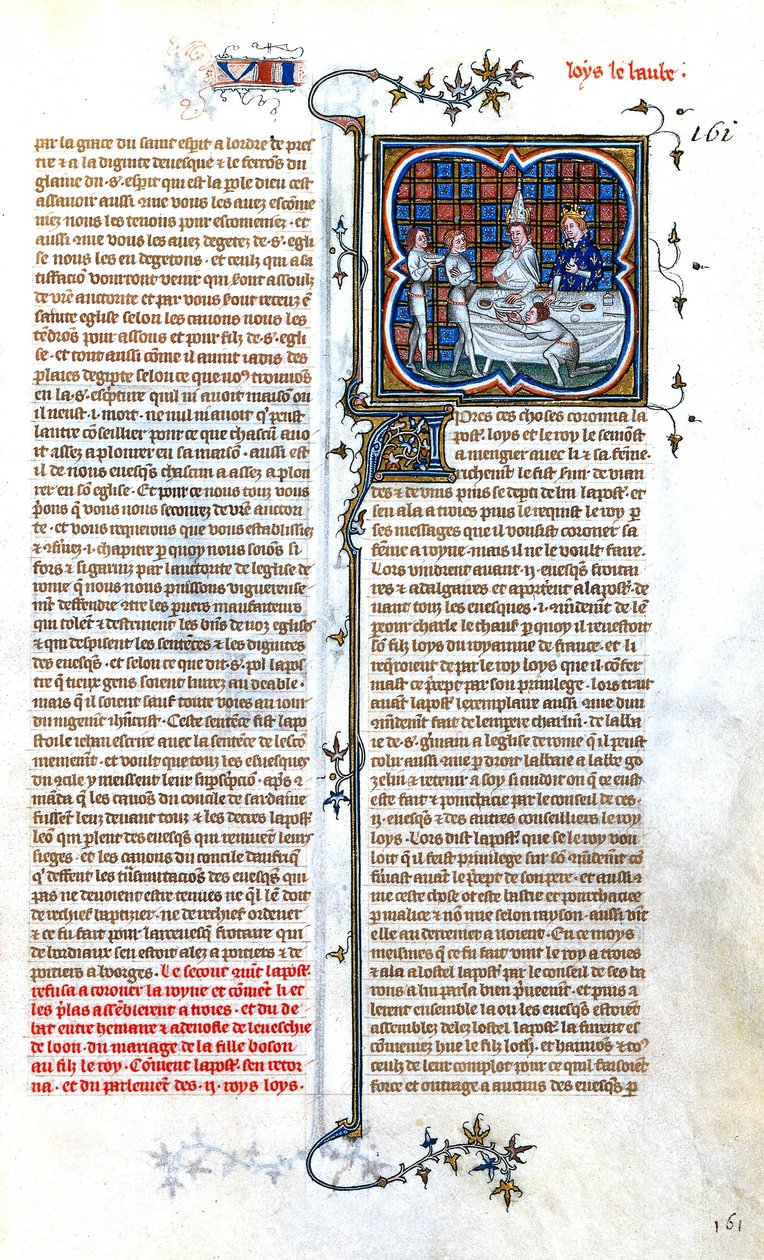 loys le baube .
161
par la grace du saint esp̃it a lordre de pres
tre ⁊ a la dignite deuesque ⁊ le ferons du
glaiue du .s. esp̃it qui est la p̃ole dieu cest
assauoir aussi ꝯme vous les auez escõme
niez nous les tenons pour escomeniez . et
aussi ꝯme vous les auez degetez de .s. egli
se nous les en degetons . et ceulz qui a sa
tiffacion vourront venir qui s̃ont assoulz
de vr̃e auctorite et par vous s̃ont receuz ẽ
sainte eglise selon les canons nous les
tẽdrõs pour assous et pour filz de .s. egli
se . et tout aussi cõme il auint iadis des
plaies degipte selon ce que noꝰ trouuõs
en la .s. escp̃ture quil ni auoit maisõ ou
il neust .i. mort . ne nul ni auoit q̃ peust
lautre cõseillier pour ce que chascũ auo
it assez a plourer en sa maisõ . aussi est
il de nous euesqs̃ chascun a assez a plou
rer en sõ eglise . Et pour ce nous touz vous
p̃ons q̃ vous nous secourez de vr̃e auctori
te . et vous requerons que vous establissiez
⁊ .i. chapitre p̱ quoy nous soiõs si
fors ⁊ si garniz par lauctorite de leglise de
rome q̃ nous nous puissons viguereuse
mt̃ deffendre ꝯtre les p̱uers maufaiteurs
qui tolẽt ⁊ destruient les biñs de noz eglises
⁊ qui despisent les sentẽces ⁊ les dignites
des euesqs̃ . et selon ce que dit .s. pol lapos
tre q̃ tieux gens soient liurez au deable .
mais q̃ il soient sauf toute voies au iour
du iugemt̃ ih̃ucrist . Ceste sentẽce fist lapo
stoile iehan escrire auec la sentẽce de lesco
mẽnement . et voult que touz les esuesques
du ꝯcile y meissent leur supsc̃pciõ . ap̃s ⁊
mãda q̃ les canõs du concile de sardaine
fussent leuz deuant touz ⁊ les decres lapost̃
leõ qui p̱lent des euesqs̃ qui remuẽt leurs
sieges . et les canons du concile daufriq̃
q̃ deffent les tñsmutaciõs des euesqs̃ qui
pas ne deuoient estre tenues ne q̃ l lẽ doit
de rechief baptizier . ne de rechief ordener
⁊ ce fu fait pour larceuesq̃ frotaire qui
de bordiaux sen estoit alez a poitiers ⁊ de
poitiers a boorges . Le secont comt̃ lapost̃.
refusa a coroner la royne et cõmẽt li et
les p̱las assẽblerent a troies . et du de
bat entre hemane ⁊ adenofle de leueschie
de loon . du mariage de la fille boson
au filz le roy . Cõment lapost̃. sen retor
na . et du parlement des .ij. roys loys .
Apres ces choses coronna la
post̃. loys et le roy le semõst
a mengier auec li ⁊ sa feme .
richemẽt le fist s̃uir de vian
des ⁊ de vins puis se dep̱ti de lui lapost̃. et
sen ala a troies puis le requist le roy p̱
ses messages que il vousist coroner sa
fẽme a royne . mais il ne le voult faire .
Lors vindrent auant .ij. euesqs̃ frotai
res ⁊ adalgaires et aportẽt a lapost̃. de
uant touz les euesques .i. ꝯmãdemt̃ de lẽ
pereour charle le chauf p̱ quoy il reuestoit
sõ filz loys du royaume de france . et li
reqroient de par le roy loys que il confer
mast ce p̃cept par son priuilege . lors trait
auãt lapost̃. lexemplaire aussi ꝯme dun
ꝯmãdemt̃ fait de lempere charlũ . de labba
ie de .s. g̃main a leglise de rome q̃ il peust
tolir aussi ꝯme p̱ droit labbaie a labbe go
zelin ⁊ retenir a soy si cuidoit on q̃ ce eust
este fait ⁊ pourchacie par le conseil de ces .
.ij. euesqs̃ ⁊ des autres conseilliers le roy
loys . Lors dist lapost̃. que se le roy vou
loit q̃ il feist priuilege sur sõ ꝯmãdemt̃ cõ
fermast auãt le p̃cept de son pere . et aussi ꝯ
me ceste chose ot este bastie et pourchaciee
p̱ malice ⁊ nõ ꝯme selon rayson . aussi vĩt
elle au derrenier a noient . En ce moys
meismes q̃ ce fu fait vint le roy a troies
⁊ ala a lostel lapost̃. par le conseil de ses ba
rons a lui parla bien p̱ueemt̃ . et puis a
lerent ensemble la ou les euesqs̃ estoiẽt
assemblez delez lostel lapost̃. la furent es
cõmeniez hue le filz loth̃. et haimos ⁊ toꝰ
ceulz de leur complot pour ce quil faisoiẽt
force et outrage a aucuns des euesqs̃ p̱
161